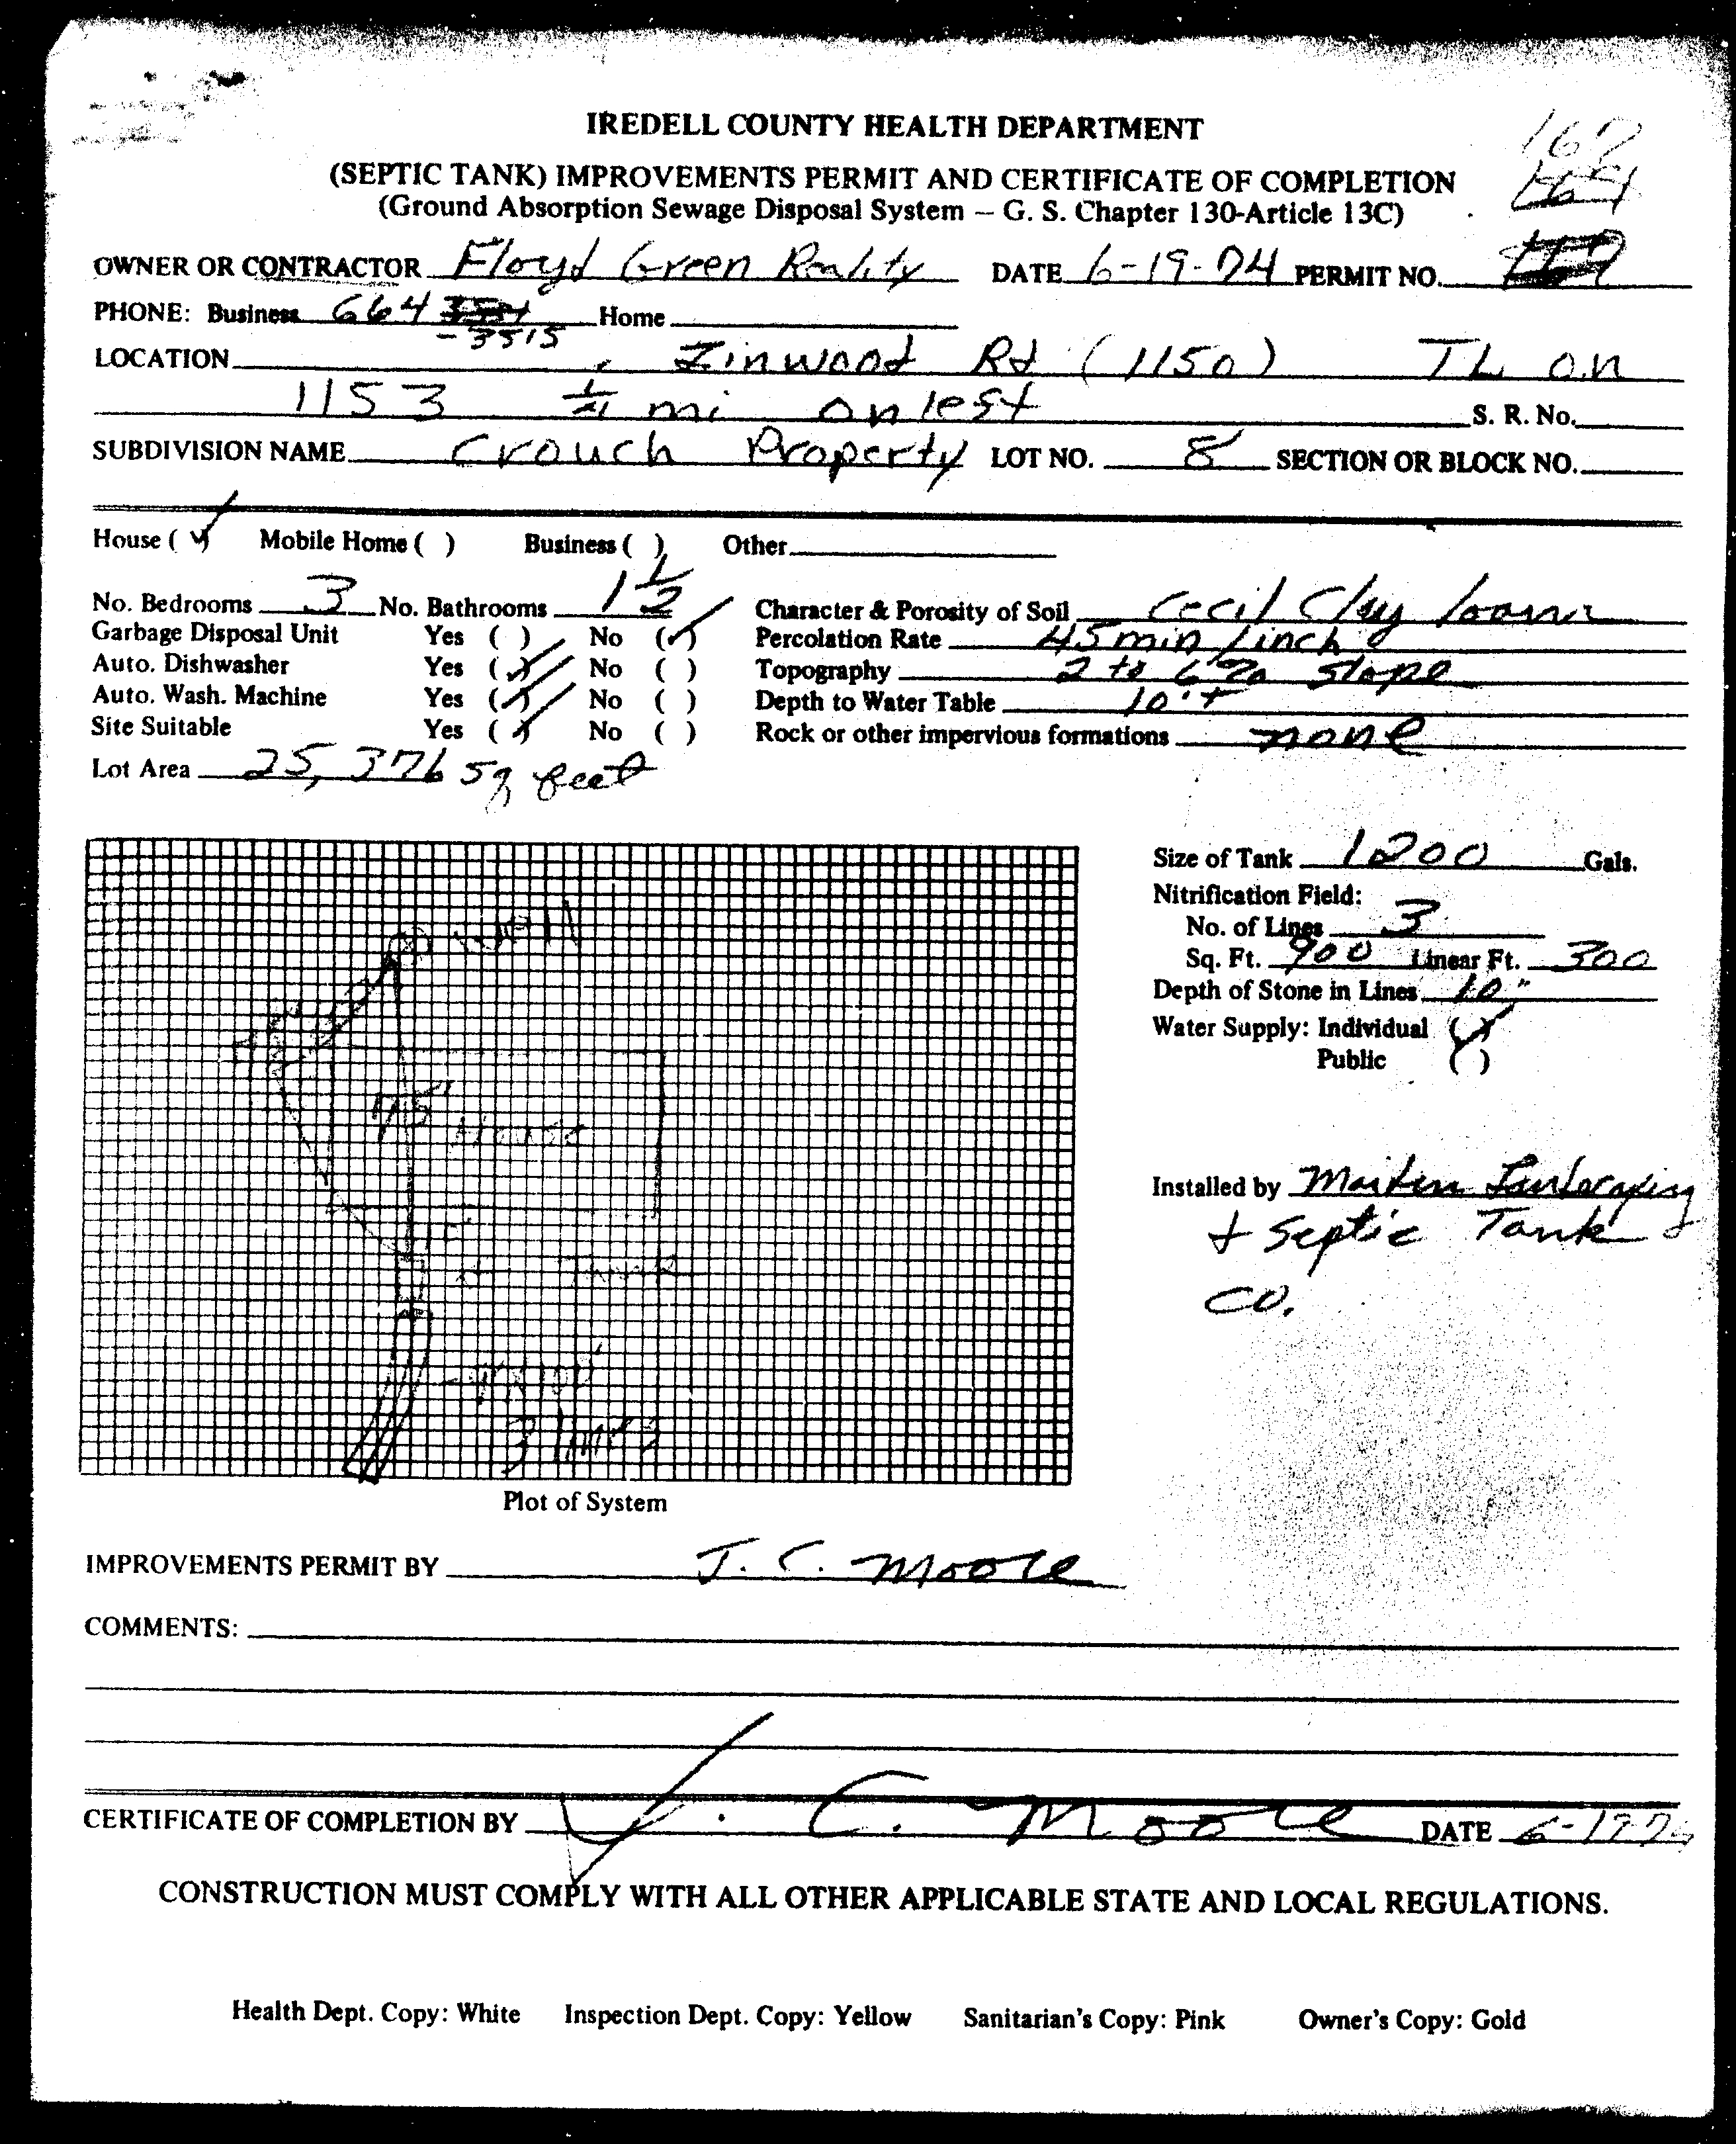 IREDELL COUNTY HEALTH DEPARTMENT
167
(SEPTIC TANK) IMPROVEMENTS PERMIT AND CERTIFICATE OF COMPLETION
(Ground Absorption Sewage Disposal System – G. S. Chapter 130-Article 13C)
OWNER OR CONTRACTOR Floyd Green Reality DATE 6-19-74 PERMIT NO.
PHONE: Business 664 -3515 Home
LOCATION Linwood Rd (1150) TL on
1153 mi on left S. R. No.
SUBDIVISION NAME Crouch Property LOT NO. 8 SECTION OR BLOCK NO.
House (✓) Mobile Home ( ) Business ( ) Other
No. Bedrooms 3 No. Bathrooms 1 1/2 Character & Porosity of Soil Cecil Clay loam
Garbage Disposal Unit Yes ( ) No (✓) Percolation Rate 45 min / inch
Auto. Dishwasher Yes (✓) No ( ) Topography 2 to 6% slope
Auto. Wash. Machine Yes (✓) No ( ) Depth to Water Table 10'+
Site Suitable Yes (✓) No ( ) Rock or other impervious formations none
Lot Area 25,376 sq feet
Size of Tank 1200 Gals.
Nitrification Field:
No. of Lines 3
Sq. Ft. 900 Linear Ft. 300
Depth of Stone in Lines 10"
Water Supply: Individual (✓)
Public ( )
Well
75'
House
Tank
3 lines
Installed by Landscaping
+ Septic Tank
CO.
Plot of System
IMPROVEMENTS PERMIT BY J. C. Moore
COMMENTS:
CERTIFICATE OF COMPLETION BY J. C. Moore DATE
CONSTRUCTION MUST COMPLY WITH ALL OTHER APPLICABLE STATE AND LOCAL REGULATIONS.
Health Dept. Copy: White Inspection Dept. Copy: Yellow Sanitarian's Copy: Pink Owner's Copy: Gold